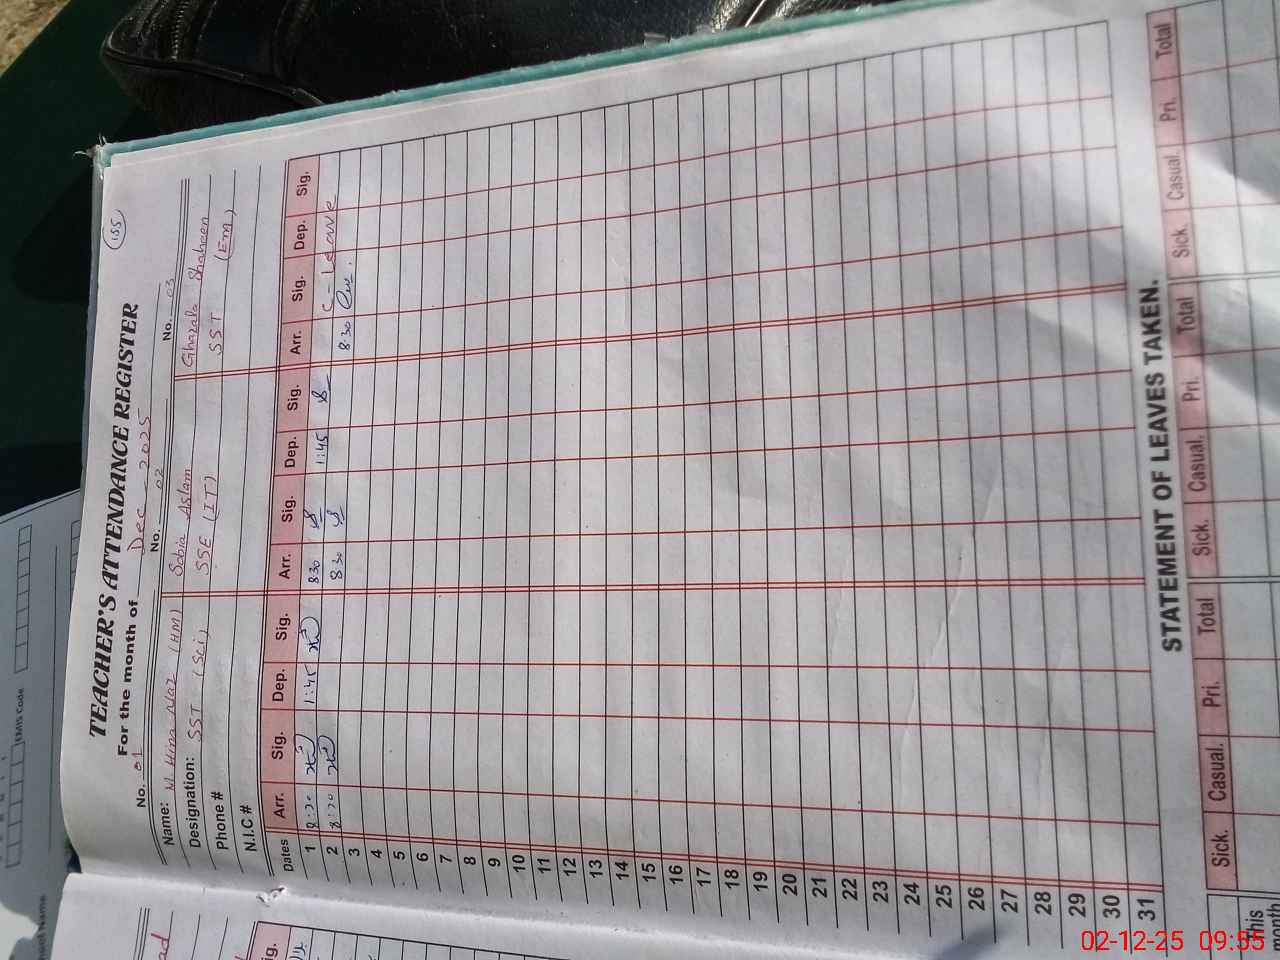 (155)
TEACHER'S ATTENDANCE REGISTER
For the month of Dec - 2025
No. 01 No. 02 No. 03
Name: Hina Naz (HM) Sobia Aslam Ghazala Shaheen
Designation: SST (Sci) SSE (IT) SST (Em)
Phone #
N.I.C #
Dates Arr. Sig. Dep. Sig. Arr. Sig. Dep. Sig. Arr. Sig. Dep. Sig.
1 8:30 1:45 8 30 1:45 C - leave
2 8:30 8 30 8 30
3
4
5
6
7
8
9
10
11
12
13
14
15
16
17
18
19
20
21
22
23
24
25
26
27
28
29
30
31
STATEMENT OF LEAVES TAKEN.
Sick. Casual. Pri. Total Sick. Casual. Pri. Total Sick. Casual. Pri. Total
This
month
EMIS Code
Name
ad
ig.
02-12-25 09:55